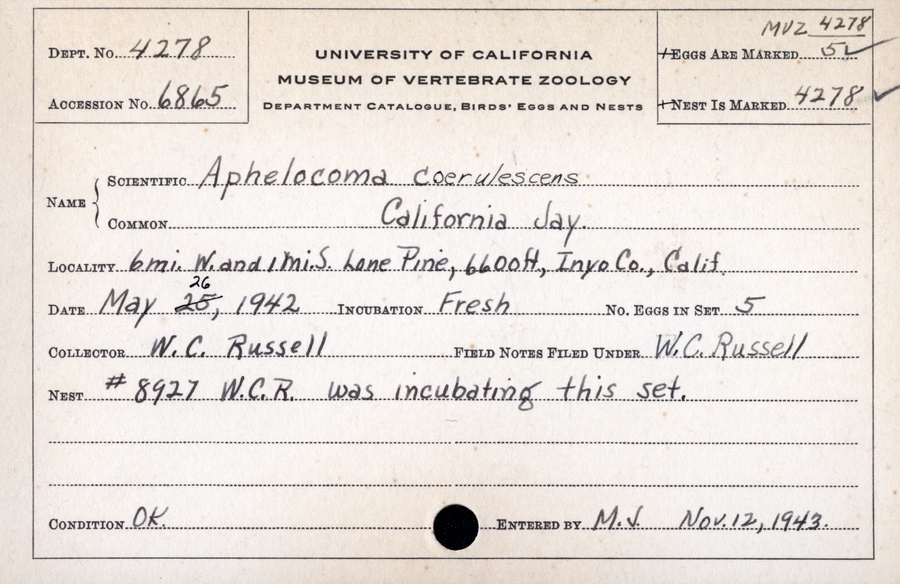 MVZ 4278
DEPT. No. 4278
UNIVERSITY OF CALIFORNIA
EGGS ARE MARKED 5
MUSEUM OF VERTEBRATE ZOOLOGY
ACCESSION No. 6865
DEPARTMENT CATALOGUE, BIRDS' EGGS AND NESTS
NEST IS MARKED 4278
NAME
SCIENTIFIC Aphelocoma coerulescens
COMMON California Jay.
LOCALITY 6mi. W. and 1mi. S. Lone Pine, 6600ft, Inyo Co., Calif.
26
DATE May 25, 1942 INCUBATION Fresh No. EGGS IN SET 5
COLLECTOR W. C. Russell FIELD NOTES FILED UNDER W.C. Russell
NEST #8927 W.C.R. was incubating this set.
CONDITION OK. ENTERED BY M.J. Nov. 12, 1943.